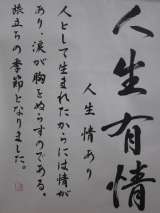 人生有情
人生情あり
人として生まれたからには情が
あり、涙が胸をぬらすのである。
旅立ちの季節となりました。